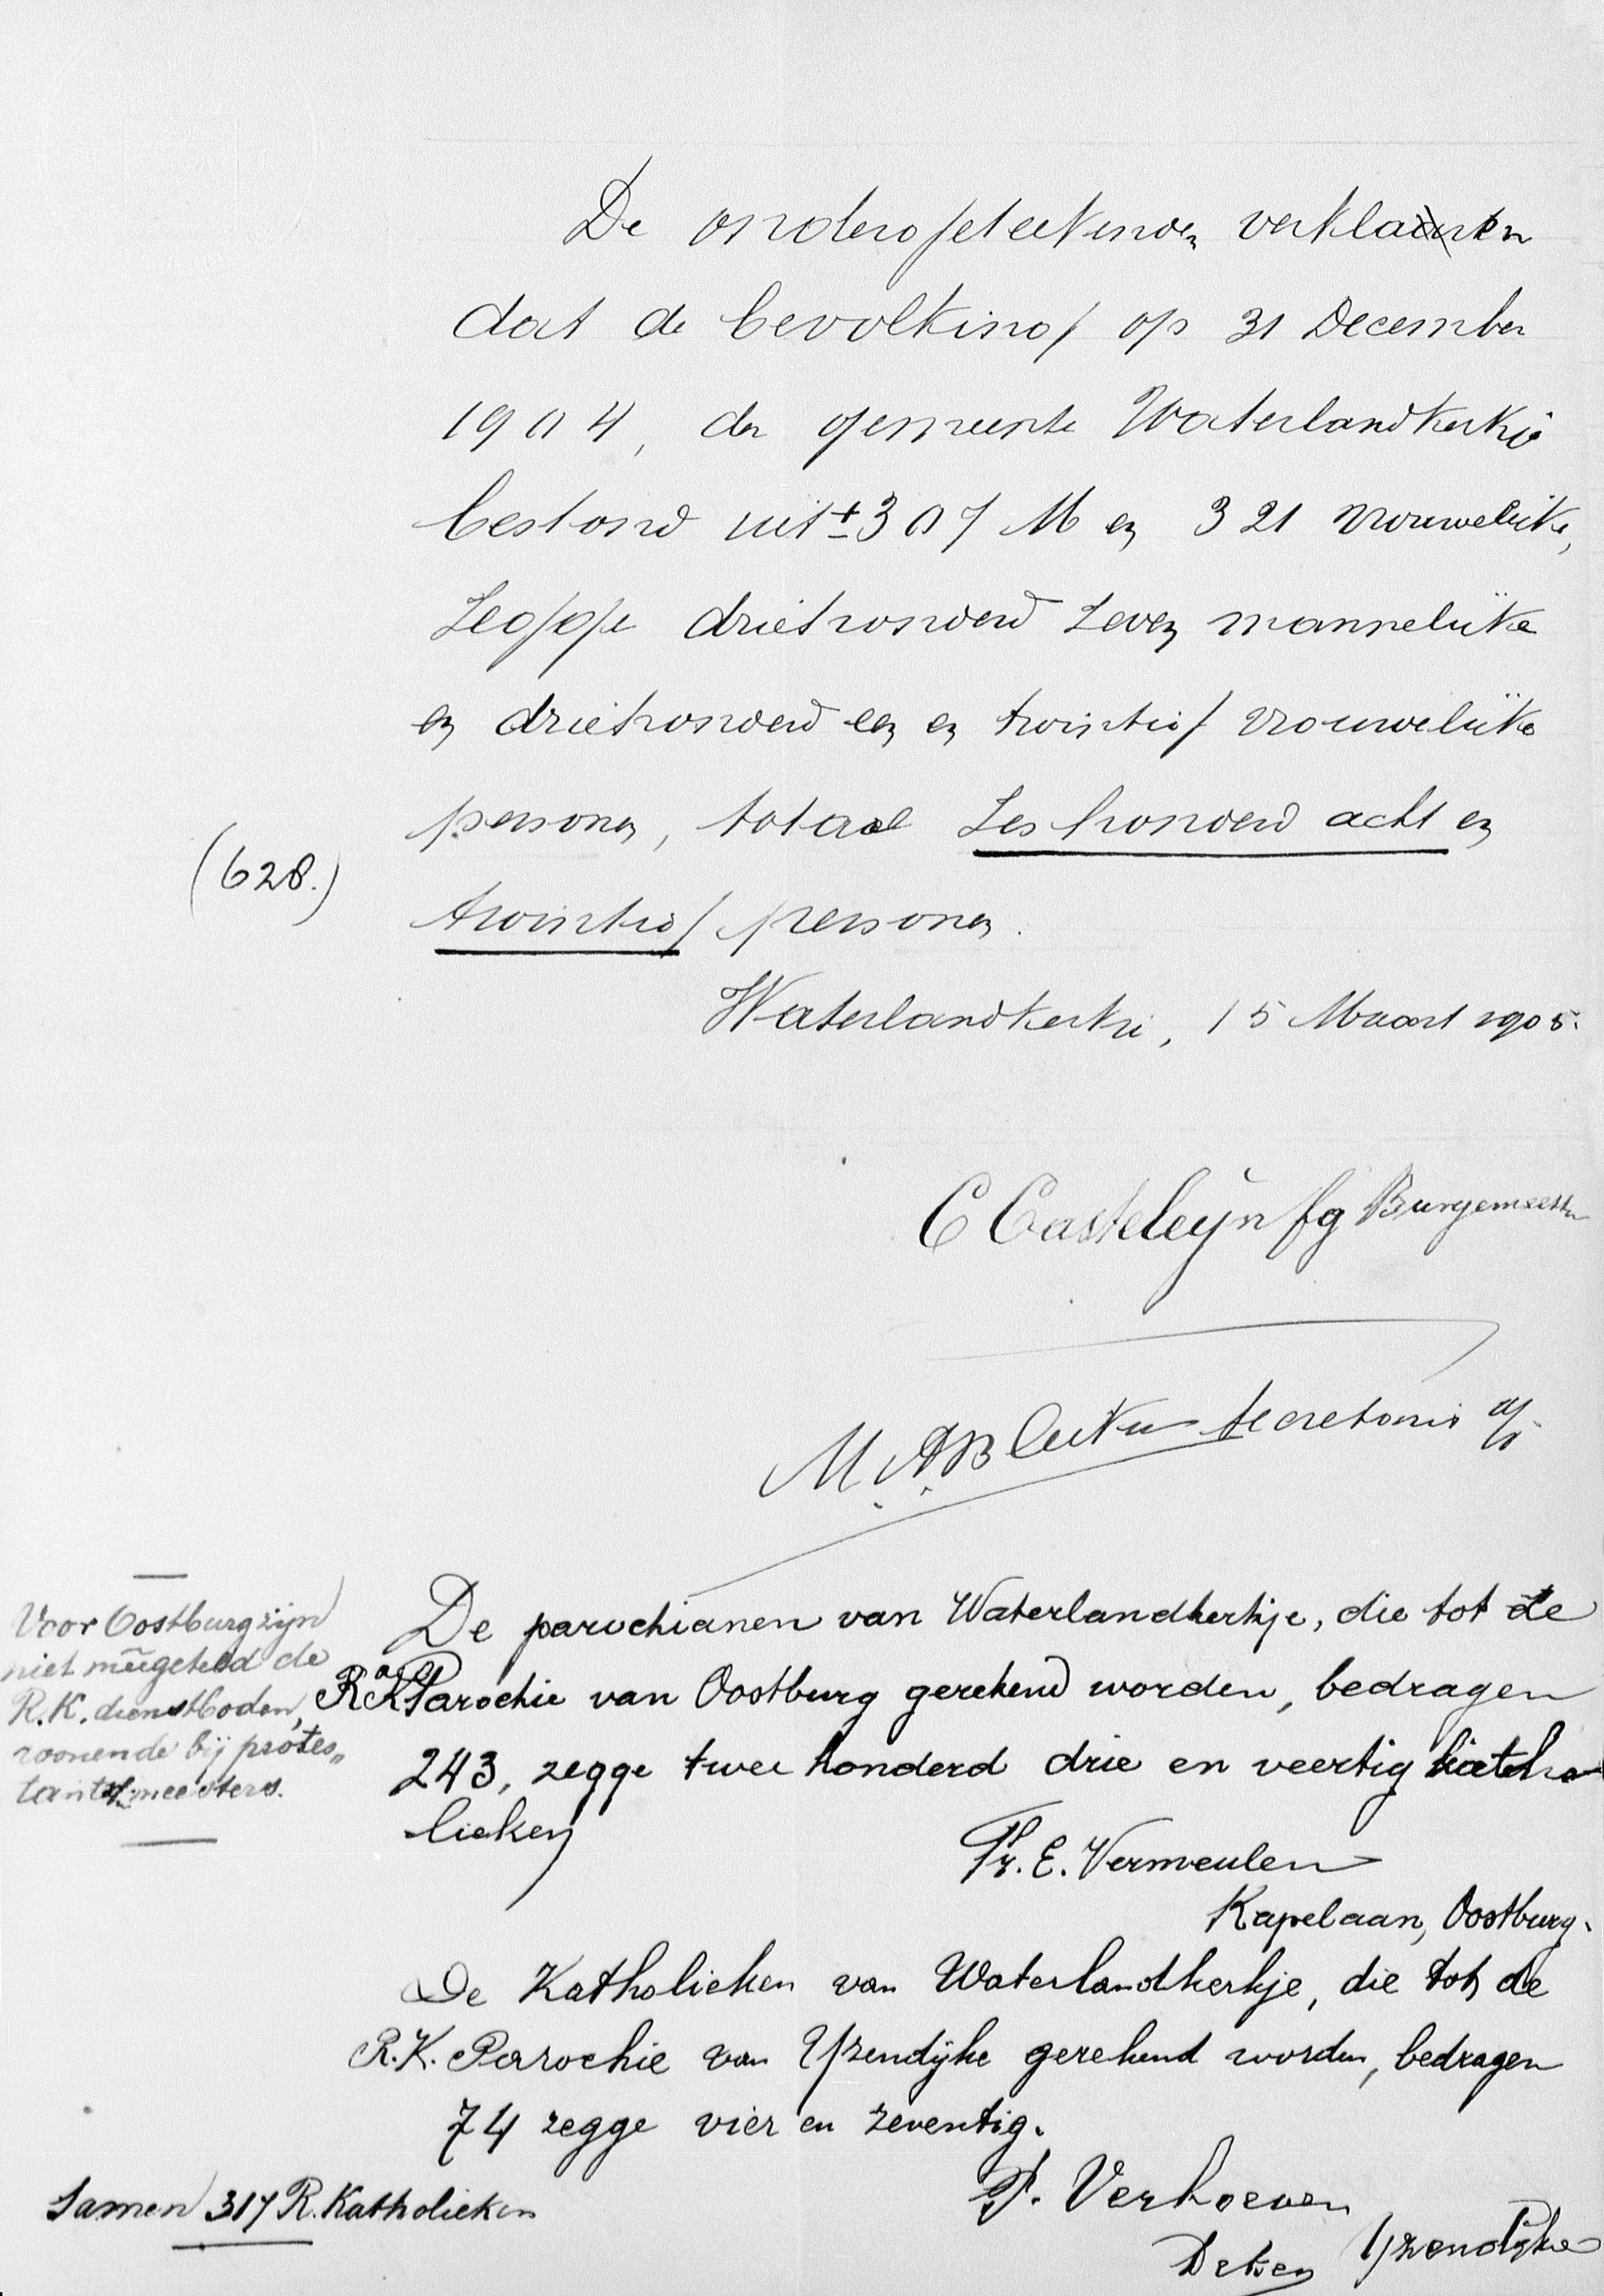 De ondergeteekenden verklaren
dat de bevolking op 31 December
1904, der gemeente Waterlandkerkje
bestond uit ± 307 M en 321 vrouwelijke,
Zegge driehonderd zeven mannelijke
en driehonderd een en twintig vrouwelijke
personen, totaal Zes honderd acht en
(628.)
twintig personen.
Waterlandkerkje, 15 Maart 1905.
C Casteleijn fg Burgemeester
M. A. secretaris
De parochianen van Waterlandkerkje, die tot de
R.K. Parochie van Oostburg gerekend worden, bedragen
243, zegge twee honderd drie en veertig katho
lieken
Voor Oostburg zijn
niet meêgeteld de
R.K. dienstboden,
wonende bij protes„
tants. meesters.
Fr. E. Vermeulen
Kapelaan, Oostburg.
De Katholieken van Waterlandkerkje, die tot de
R.K. Parochie van Yzendijke gerekend worden, bedragen
74 zegge vier en zeventig.
P. Verhoeven
Deken Yzendijke
Samen 317 R. Katholieken